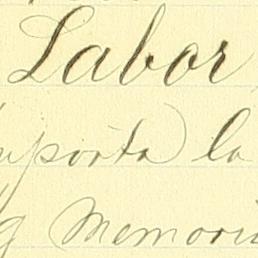 Labor
importa la
Memori